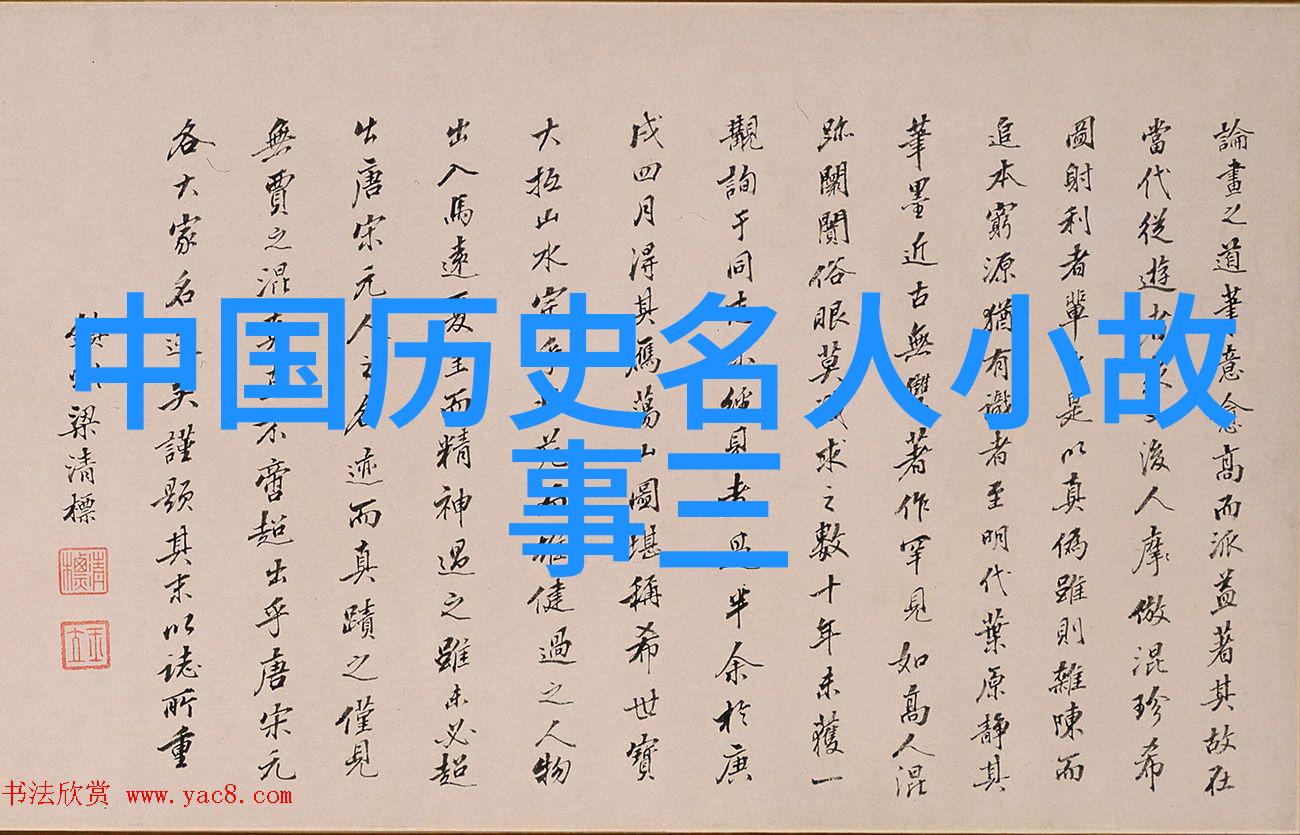 論畫之道筆意愈高而派益著其故在
當代從遊
後人摩倣混珍希
圖射利者輩
是以真偽雖則雜陳而
追本窮源猶有識者至明代葉原靜其
筆墨近古無雙著作罕見如高人混
跡闤闠俗眼莫識求之數十年未獲一
觀詢于同
半余於庚
戌四月得其雁蕩山圖堪稱希世寶
大抵山水宗
健過之人物
出入馬遠夏圭而精神過之雖未必超
出唐宋元人之名迹而真蹟之僅見
無賈之混
不啻超出乎唐宋元
各大家名
矣謹題其末以誌所重
梁清標
清標
中国历史名人小故
事三
书法欣赏 www.yac8.com